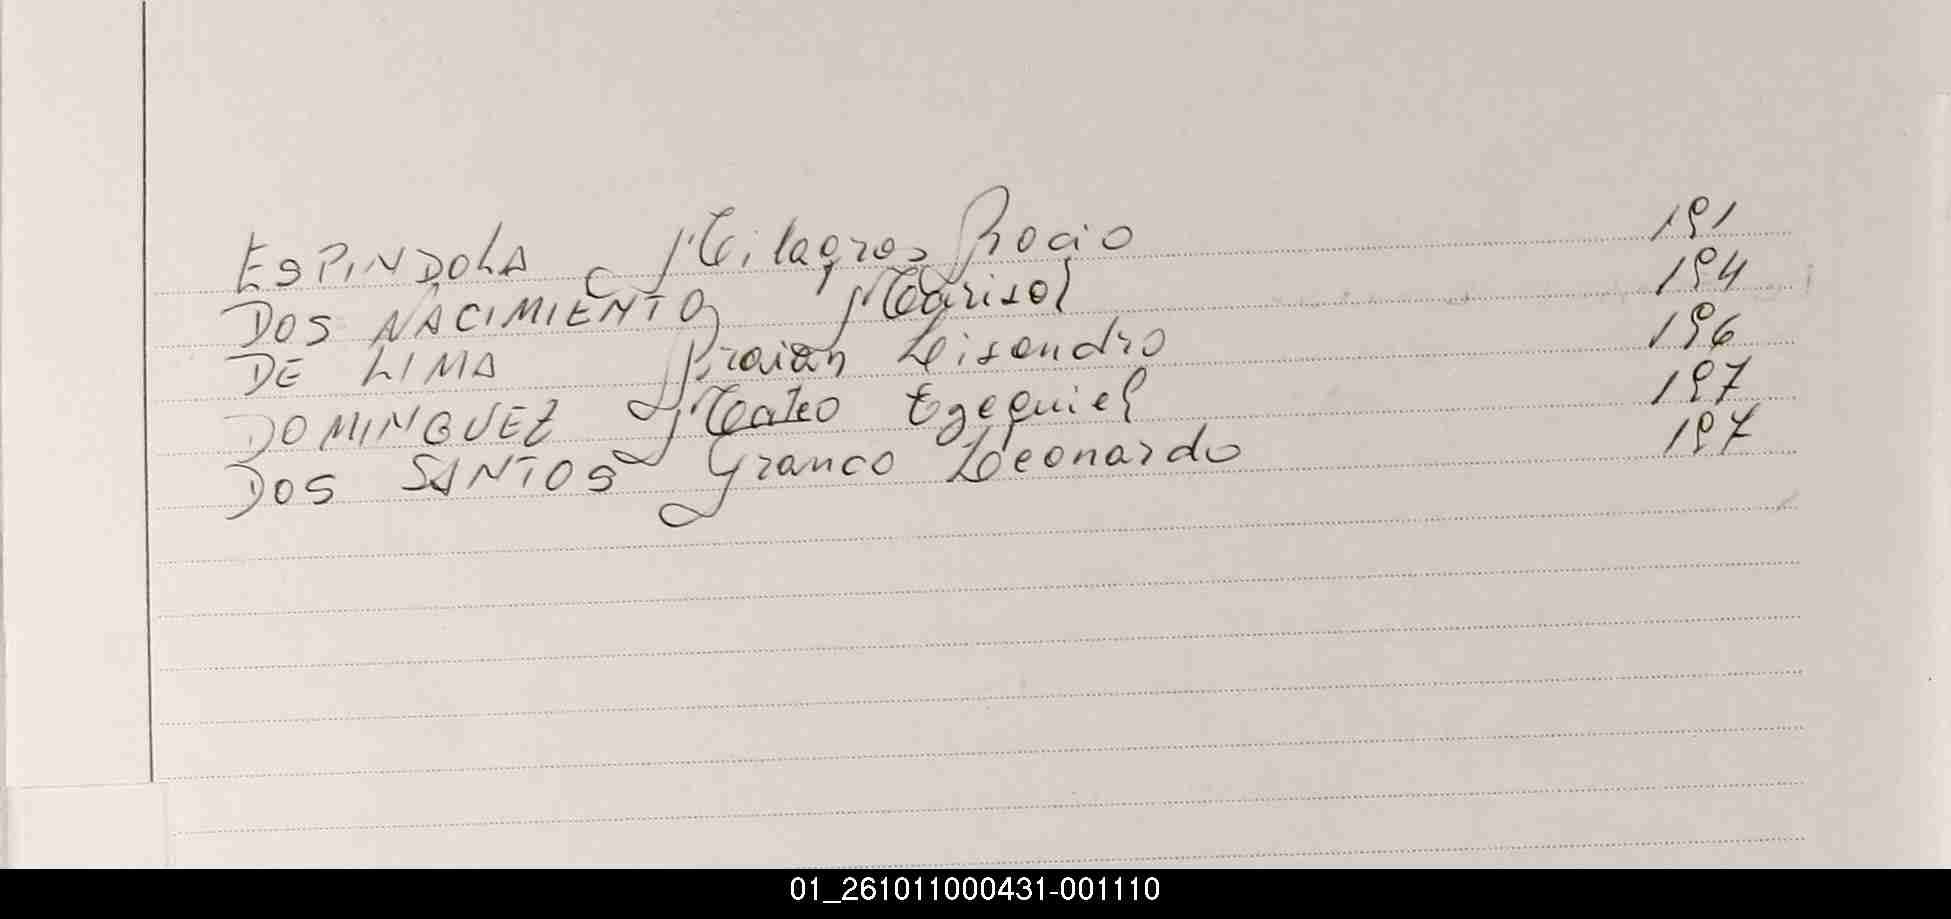 ESPINDOLA Milagros Rocio 191
DOS NACIMIENTO Marisol 194
DE LIMA Braian Lisandro 196
DOMINGUEZ Mateo Ezequiel 197
DOS SANTOS Franco Leonardo 197
01_261011000431-001110